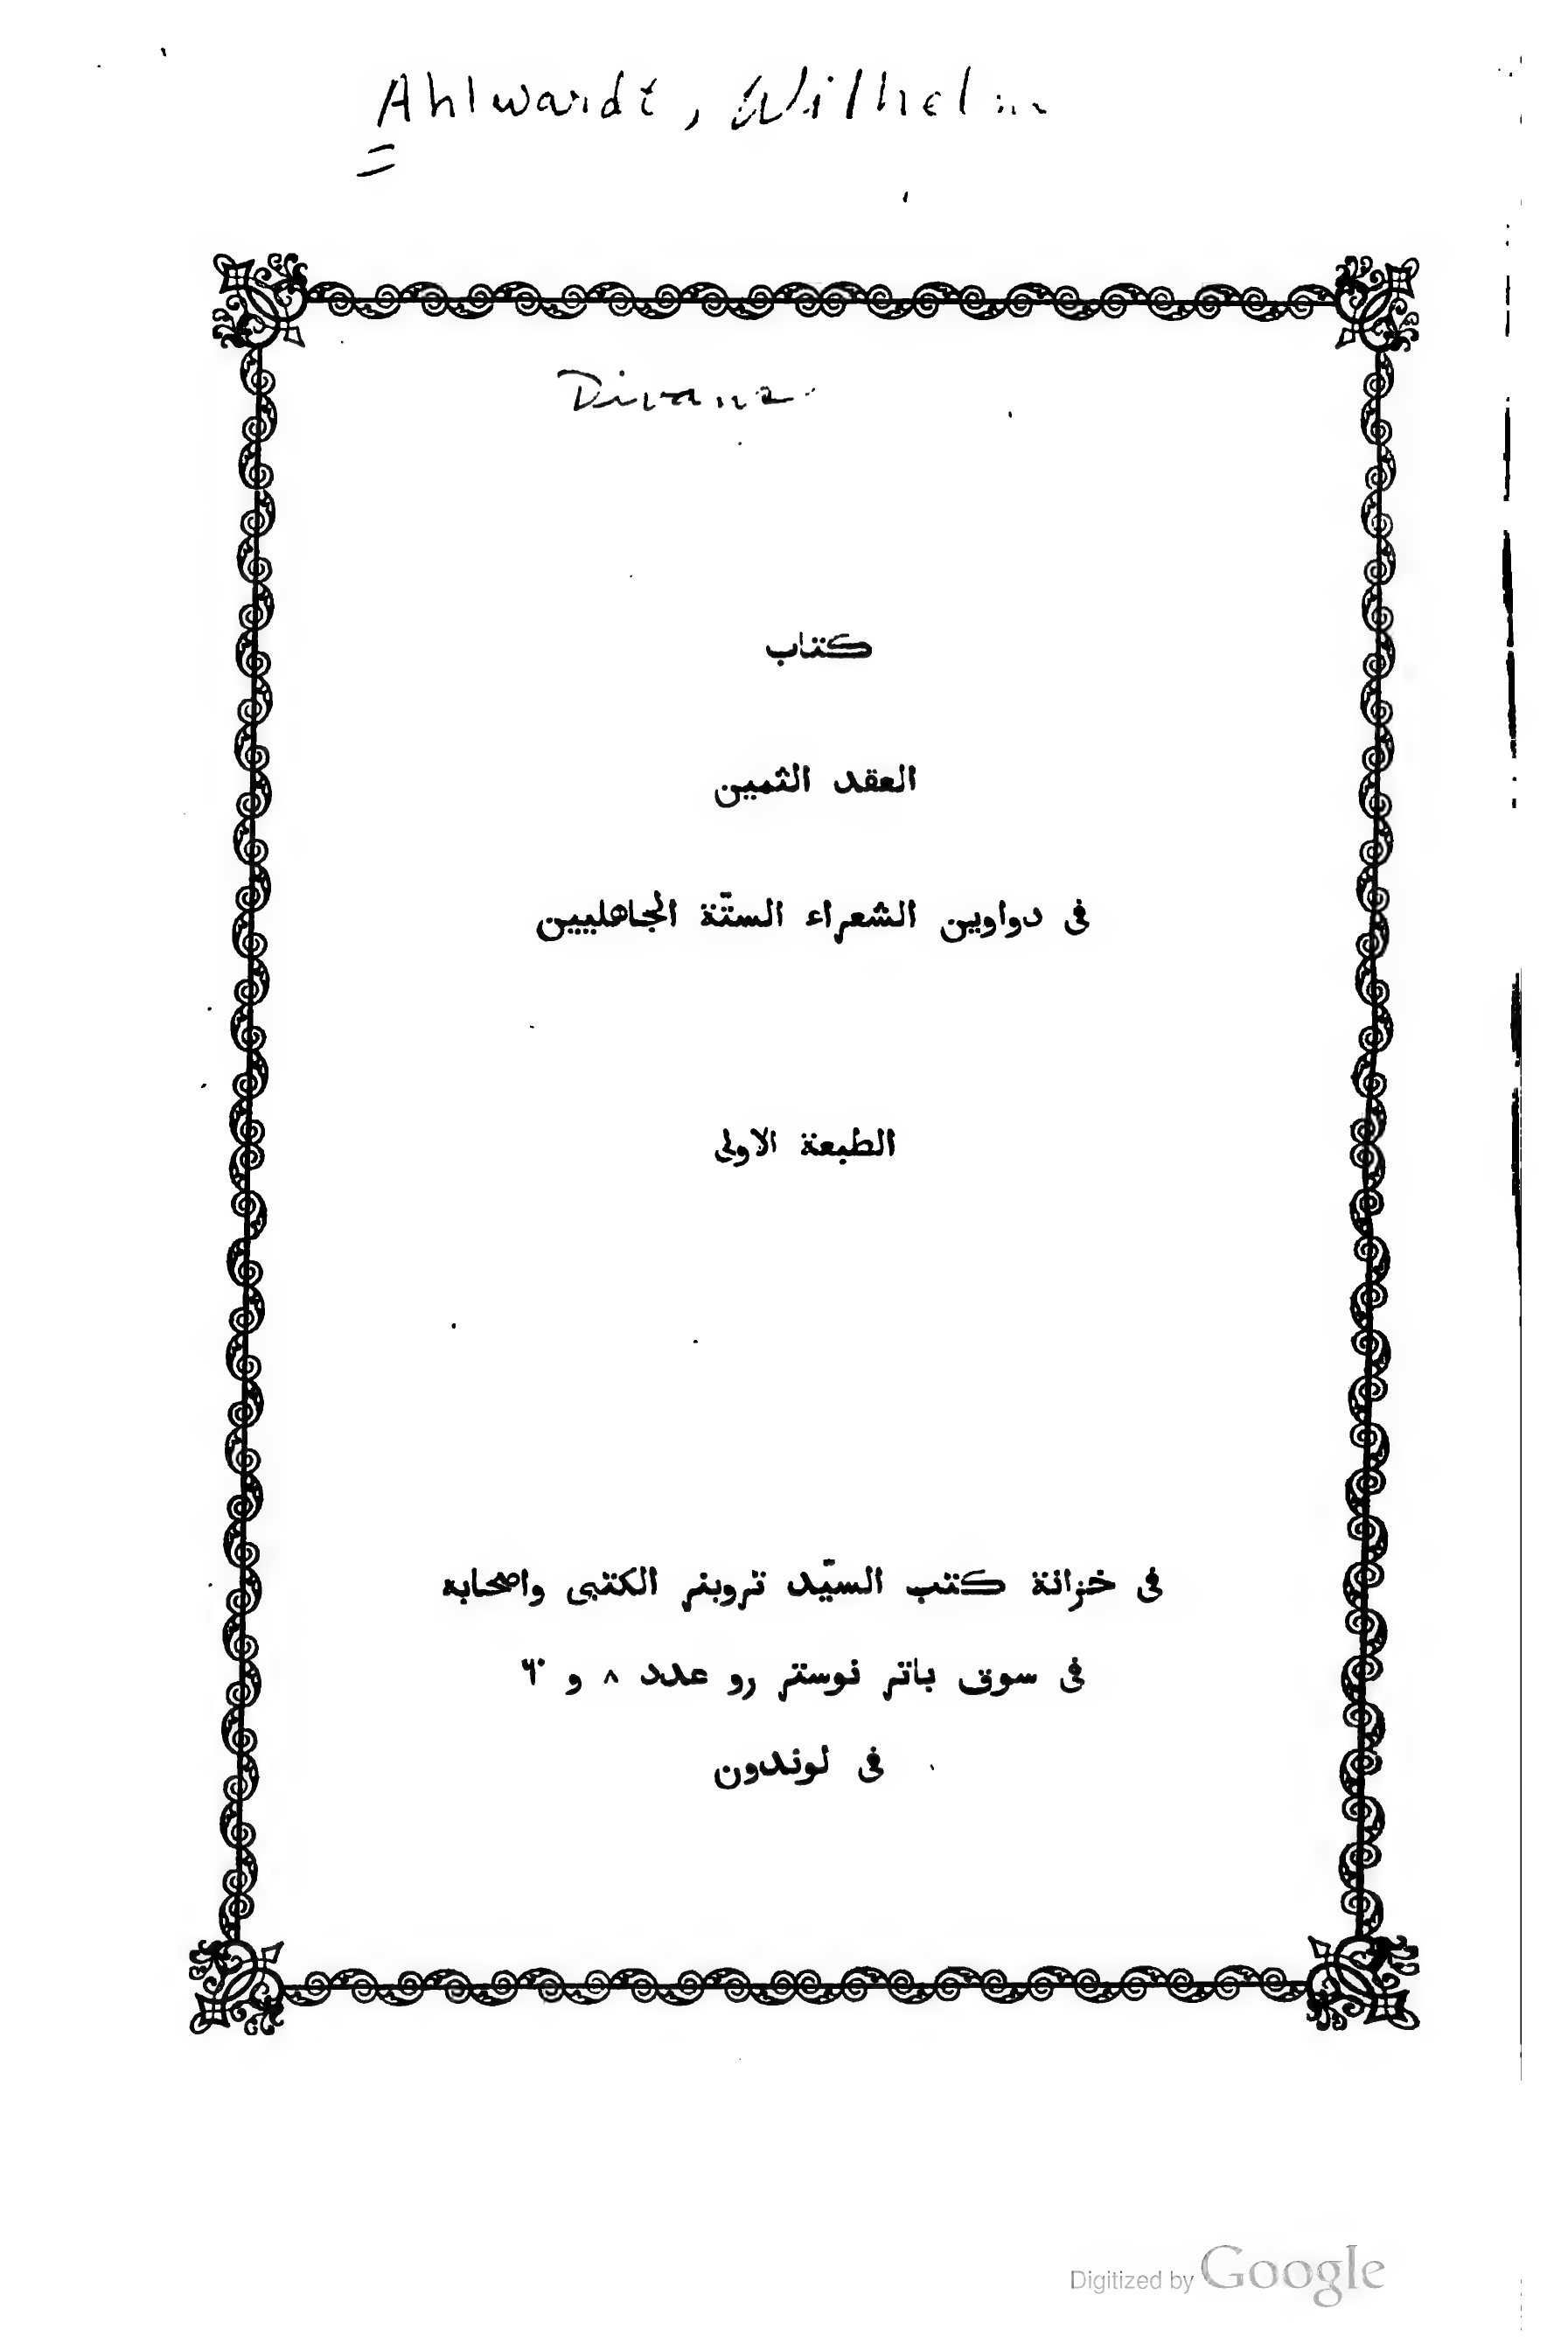 Ahlwardt, Wilhelm
Divans
كتاب
العقد الثمين
فى دواوين الشعراء الستّة الجاهليين
الطبعة الاولى
فى خزانة كتب السيّد تروبنر الكتبى واصحابه
فى سوق باتر نوستر رو عدد ٨ و ٦٠
فى لوندون
Digitized by Google